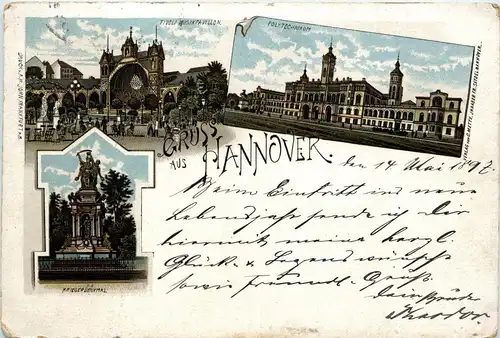 TIVOLI MUSIKPAVILLON.
POLYTECHNIKUM
GRUSS
AUS HANNOVER.
KRIEGERDENKMAL
den 14 Mai 1897.
Beim Eintritt ins neue
Lebensjahr sende ich Dir
hiermit meine herzl.
Glück- & Segenwünsche
sowie freundl. Gruß.
Dein
Theodor